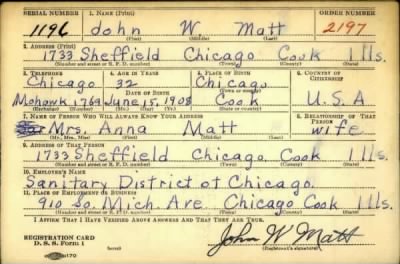 SERIAL NUMBER 1. NAME (Print) ORDER NUMBER
1196 John W Matt 2197
(First) (Middle) (Last)
2. ADDRESS (Print)
1733 Sheffield Chicago Cook Ills.
(Number and street or R. F. D. number) (Town) (County) (State)
3. TELEPHONE 4. AGE IN YEARS 5. PLACE OF BIRTH 6. COUNTRY OF CITIZENSHIP
Chicago 32 Chicago
DATE OF BIRTH
Mohawk 1769 June 15, 1908 Cook U.S.A
(Exchange) (Number) (Mo.) (Day) (Yr.) (State or country)
7. NAME OF PERSON WHO WILL ALWAYS KNOW YOUR ADDRESS 8. RELATIONSHIP OF THAT PERSON
Mrs. Anna Matt wife
(Mr., Mrs., Miss) (First) (Middle) (Last)
9. ADDRESS OF THAT PERSON
1733 Sheffield Chicago. Cook Ills.
(Number and street or R. F. D. number) (Town) (County) (State)
10. EMPLOYER'S NAME
Sanitary District of Chicago.
11. PLACE OF EMPLOYMENT OR BUSINESS
910 So. Mich Ave Chicago Cook Ills.
(Number and street or R. F. D. number) (Town) (County) (State)
I AFFIRM THAT I HAVE VERIFIED ABOVE ANSWERS AND THAT THEY ARE TRUE.
REGISTRATION CARD
D. S. S. Form 1
John W Matt